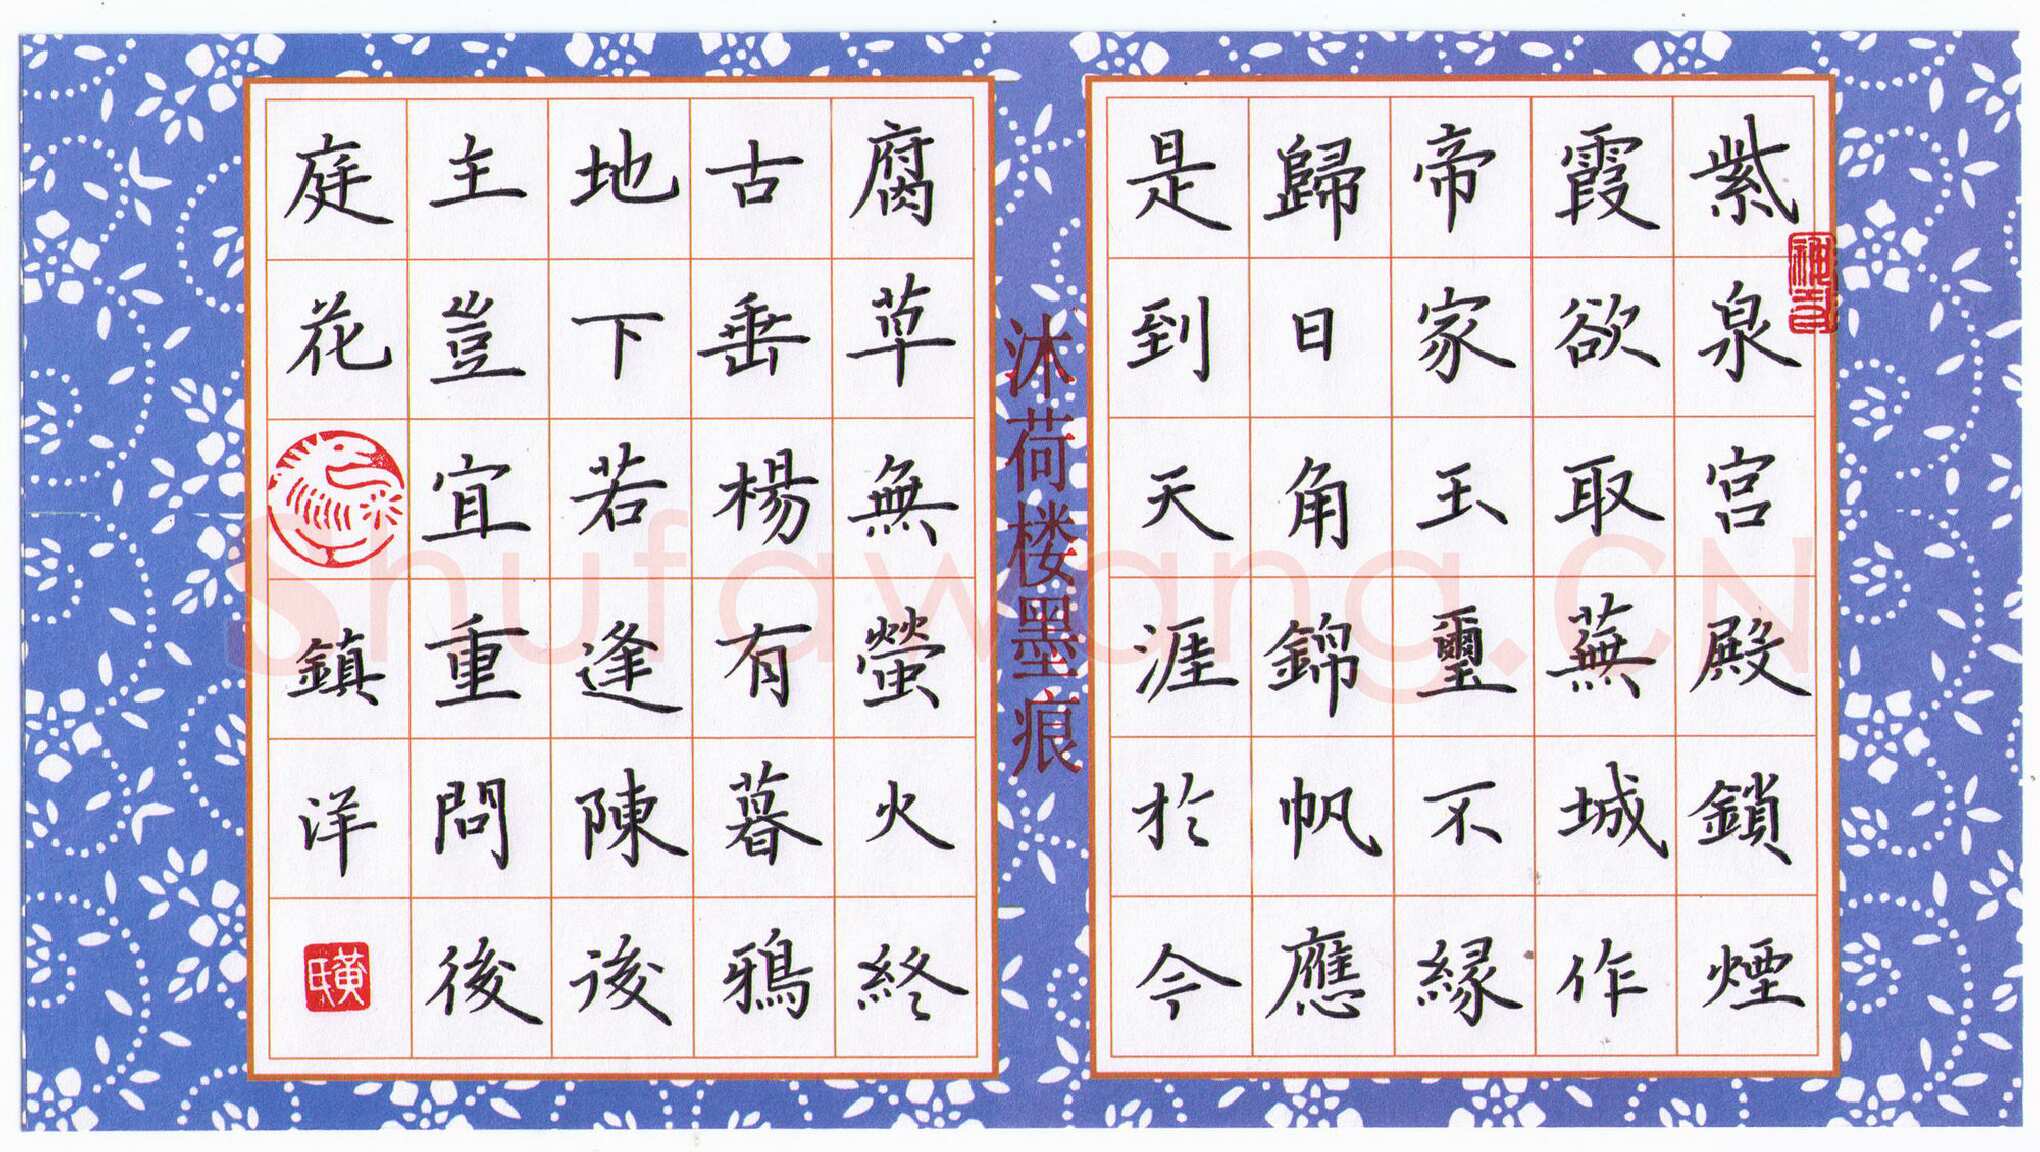 紫泉宫殿鎖煙
霞欲取蕪城作
帝家玉璽不緣
歸日角錦帆應
是到天涯於今
沐荷楼墨痕
腐草無螢火終
古垂楊有暮鴉
地下若逢陳後
主豈宜重問後
庭花
鎮洋
Shufawang.CN